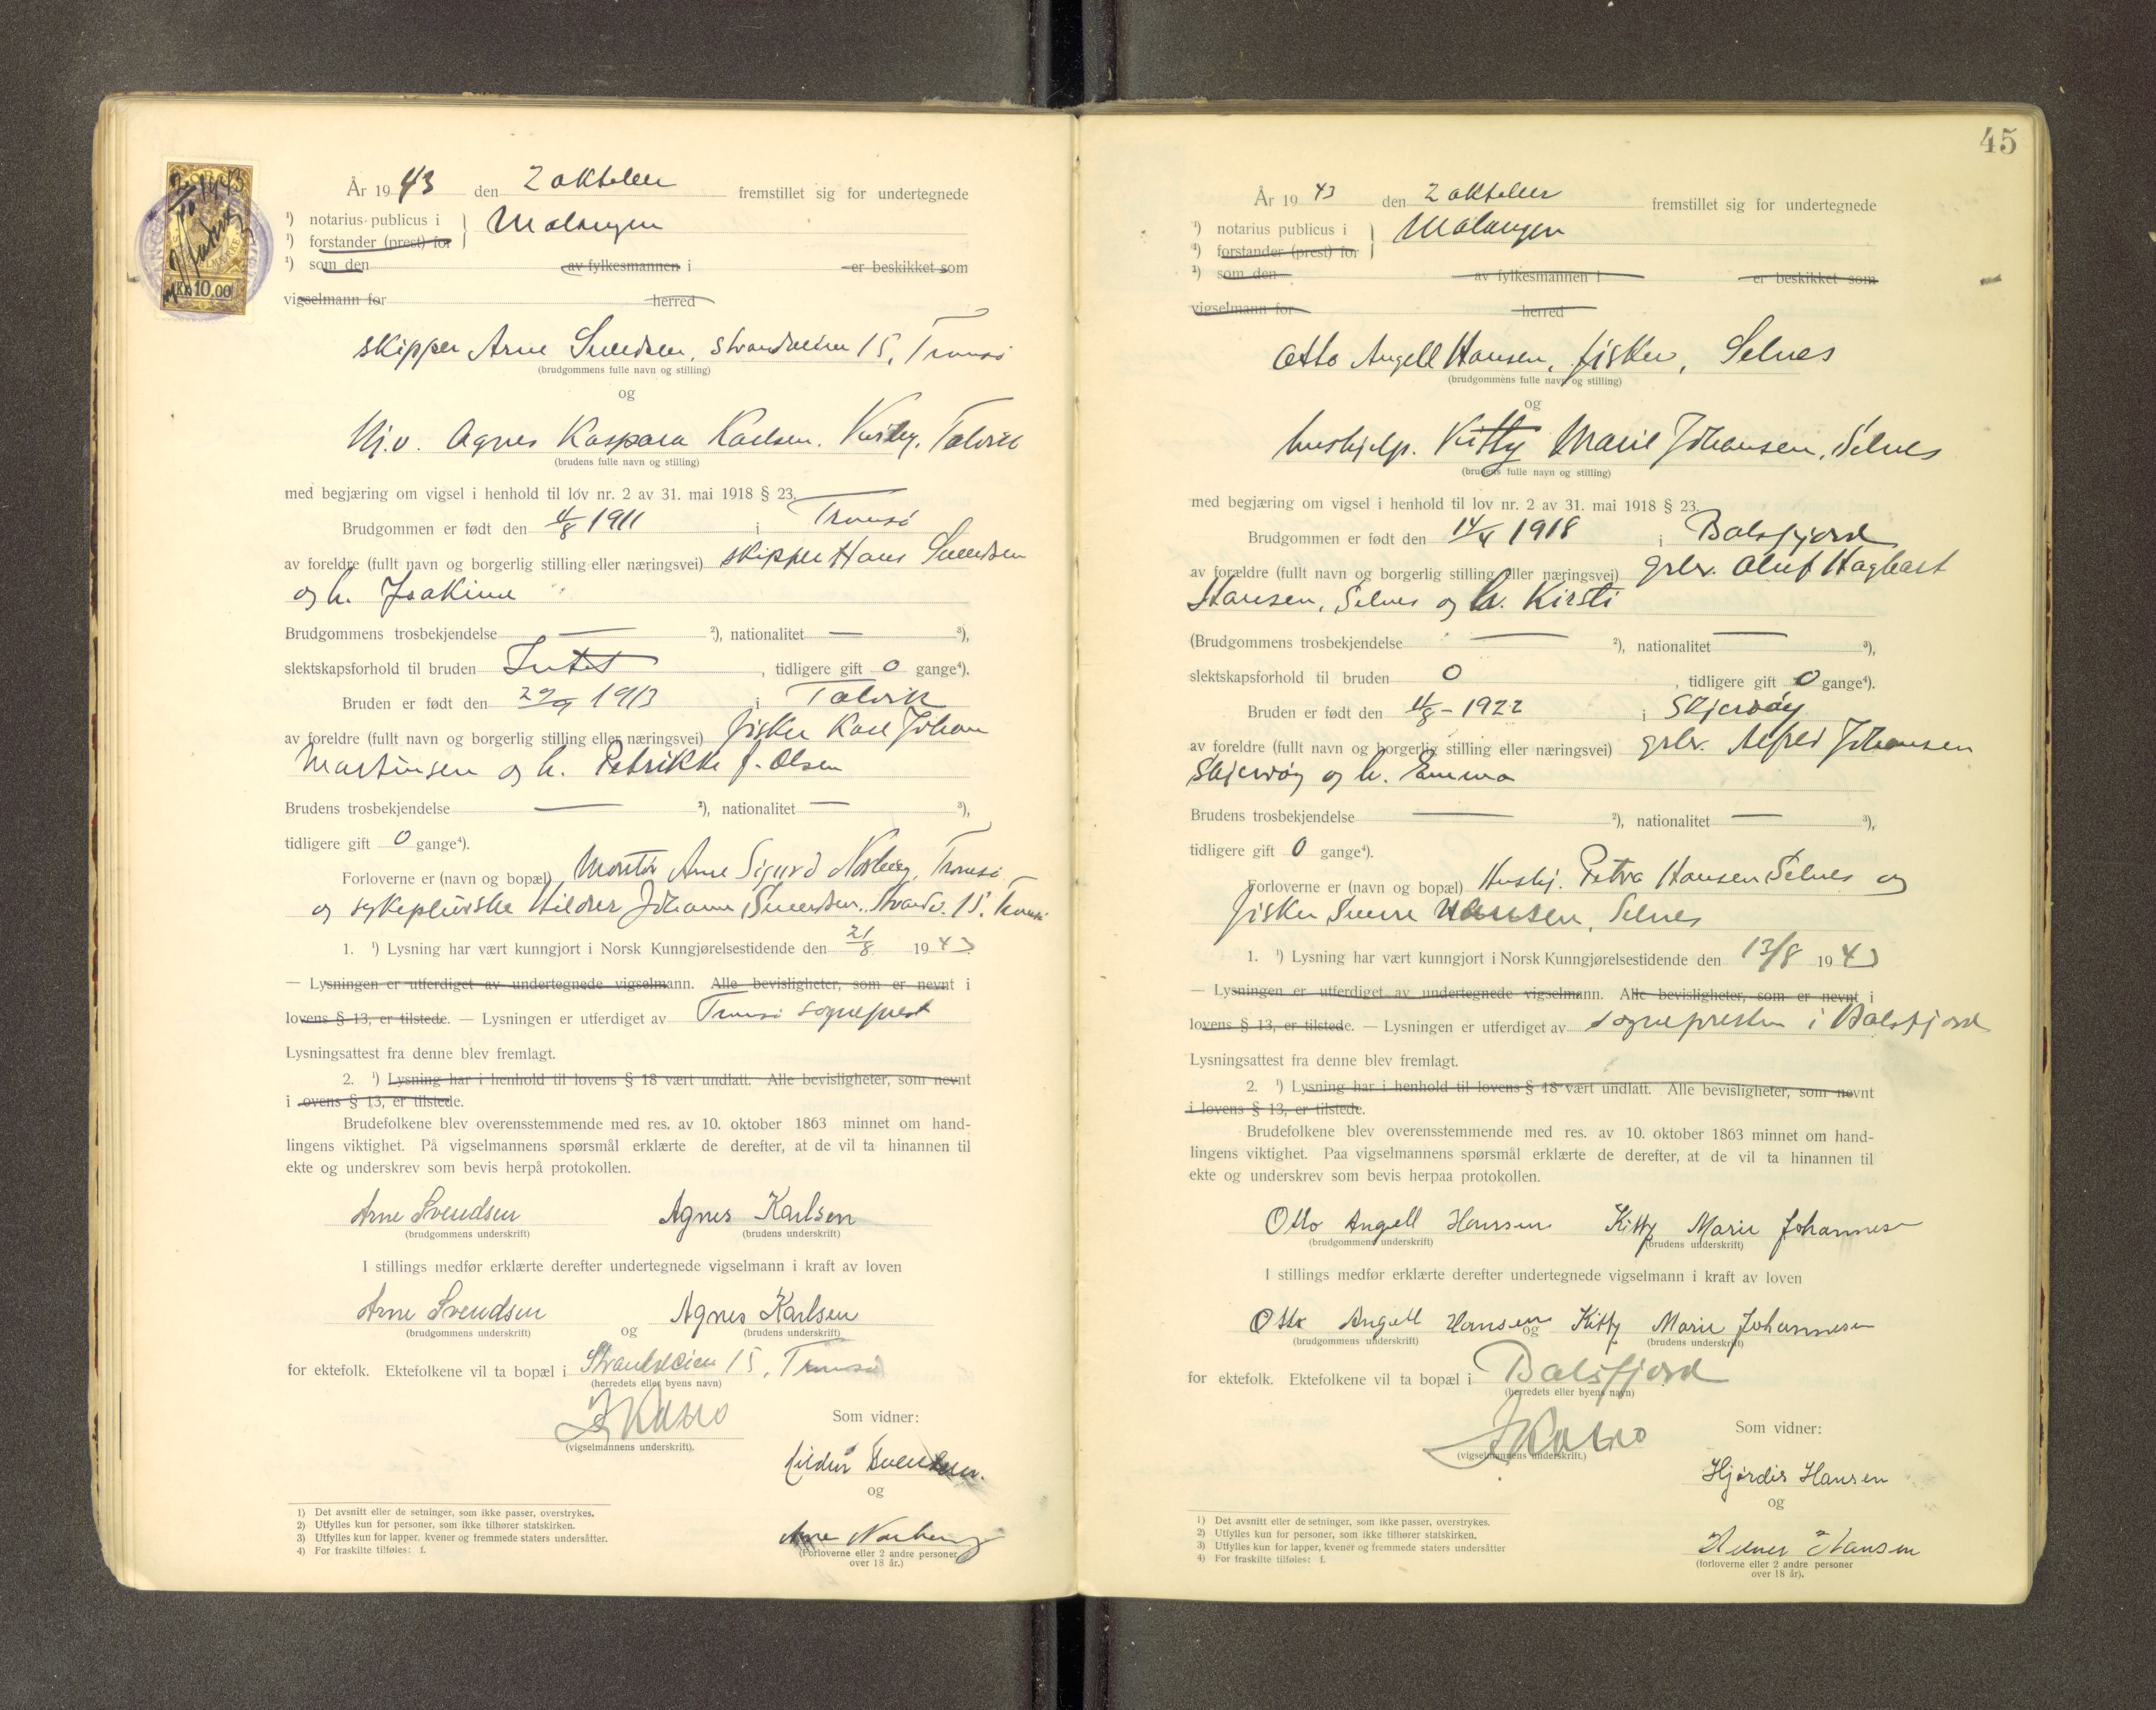 År 1943 den 2 oktober fremstillet sig for undertegnede
¹) notarius publicus i } Malangen
¹) forstander (prest) for
¹) som den av fylkesmannen i er beskikket som
vigselmann for herred
KR 10.00
skipper Arne Svendsen, Strandveien 15, Tromsö
(brudgommens fulle navn og stilling)
og
Hj.v. Agnes Kaspara Karlsen. Talvik
(brudens fulle navn og stilling)
med begjæring om vigsel i henhold til lov nr. 2 av 31. mai 1918 § 23.
Brudgommen er født den 4/8 1911 i Tromsö
av foreldre (fullt navn og borgerlig stilling eller næringsvei) skipper Hans Svendsen
og h. Joakime
Brudgommens trosbekjendelse — ²), nationalitet — ³),
slektskapsforhold til bruden Intet, tidligere gift 0 gange⁴).
Bruden er født den 29/9 1913 i Talvik
av foreldre (fullt navn og borgerlig stilling eller næringsvei) fisker Karl Johan
Martinsen og h. Petrikke f. Olsen
Brudens trosbekjendelse — ²), nationalitet — ³),
tidligere gift 0 gange⁴).
Forloverne er (navn og bopæl) Montör Arne Sigurd Norberg, Tromsö
og sykepleierske Hildur Johanne Svendsen, Strandv. 15, Tromsö
1. ¹) Lysning har vært kunngjort i Norsk Kunngjørelsestidende den 21/8 1943
— Lysningen er utferdiget av undertegnede vigselmann. Alle bevisligheter, som er nevnt i
lovens § 13, er tilstede. — Lysningen er utferdiget av Tromsö sogneprest
Lysningsattest fra denne blev fremlagt.
2. ¹) Lysning har i henhold til lovens § 18 vært undlatt. Alle bevisligheter, som nevnt
i ovens § 13, er tilstede.
Brudefolkene blev overensstemmende med res. av 10. oktober 1863 minnet om hand-
lingens viktighet. På vigselmannens spørsmål erklærte de derefter, at de vil ta hinannen til
ekte og underskrev som bevis herpå protokollen.
Arne Svendsen Agnes Karlsen
(brudgommens underskrift) (brudens underskrift)
I stillings medfør erklærte derefter undertegnede vigselmann i kraft av loven
Arne Svendsen og Agnes Karlsen
(brudgommens underskrift) (brudens underskrift)
for ektefolk. Ektefolkene vil ta bopæl i Strandveien 15, Tromsö
(herredets eller byens navn)
(vigselmannens underskrift).
Som vidner:
Hildur Svendsen.
og
Arne Norberg
(Forloverne eller 2 andre personer
over 18 år.)
1) Det avsnitt eller de setninger, som ikke passer, overstrykes.
2) Utfylles kun for personer, som ikke tilhører statskirken.
3) Utfylles kun for lapper, kvener og fremmede staters undersåtter.
4) For fraskilte tilføies: f.
45
År 1943 den 2 oktober fremstillet sig for undertegnede
¹) notarius publicus i } Malangen
¹) forstander (prest) for
¹) som den av fylkesmannen i er beskikket som
vigselmann for herred
Otto Angell Hansen, fisker, Selnes
(brudgommens fulle navn og stilling)
og
hushjelp. Kitty Marie Johansen, Selnes
(brudens fulle navn og stilling)
med begjæring om vigsel i henhold til lov nr. 2 av 31. mai 1918 § 23.
Brudgommen er født den 14/4 1918 i Balsfjord
av forældre (fullt navn og borgerlig stilling eller næringsvei) grbr. Oluf Hagbart
Hansen, Selnes og h. Kirsti
(Brudgommens trosbekjendelse — ²), nationalitet — ³),
slektskapsforhold til bruden 0, tidligere gift 0 gange⁴).
Bruden er født den 4/8 - 1922 i Skjervöy
av foreldre (fullt navn og borgerlig stilling eller næringsvei) grbr. Alfred Johansen
Skjervöy og h. Emma
Brudens trosbekjendelse — ²), nationalitet — ³),
tidligere gift 0 gange⁴).
Forloverne er (navn og bopæl) Hushj. Petra Hansen Selnes og
fisker Sverre Hansen, Selnes
1. ¹) Lysning har vært kunngjort i Norsk Kunngjørelsestidende den 13/8 1943
— Lysningen er utferdiget av undertegnede vigselmann. Alle bevisligheter, som er nevnt i
lovens § 13, er tilstede. — Lysningen er utferdiget av sognepresten i Balsfjord
Lysningsattest fra denne blev fremlagt.
2. ¹) Lysning har i henhold til lovens § 18 vært undlatt. Alle bevisligheter, som nevnt
i lovens § 13, er tilstede.
Brudefolkene blev overensstemmende med res. av 10. oktober 1863 minnet om hand-
lingens viktighet. Paa vigselmannens spørsmål erklærte de derefter, at de vil ta hinannen til
ekte og underskrev som bevis herpaa protokollen.
Otto Angell Hanssen Kitty Marie Johannesen
(brudgommens underskrift) (brudens underskrift)
I stillings medfør erklærte derefter undertegnede vigselmann i kraft av loven
Otto Angell Hansen og Kitty Marie Johannesen
(brudgommens underskrift) (brudens underskrift)
for ektefolk. Ektefolkene vil ta bopæl i Balsfjord
(herredets eller byens navn)
(vigselmannens underskrift.)
Som vidner:
Hjördis Hansen
og
Hansen
(forloverne eller 2 andre personer
over 18 år).
1) Det avsnitt eller de setninger, som ikke passer, overstrykes.
2) Utfylles kun for personer, som ikke tilhører statskirken.
3) Utfylles kun for lapper, kvener og fremmede staters undersåtter
4) For fraskilte tilføies: f.